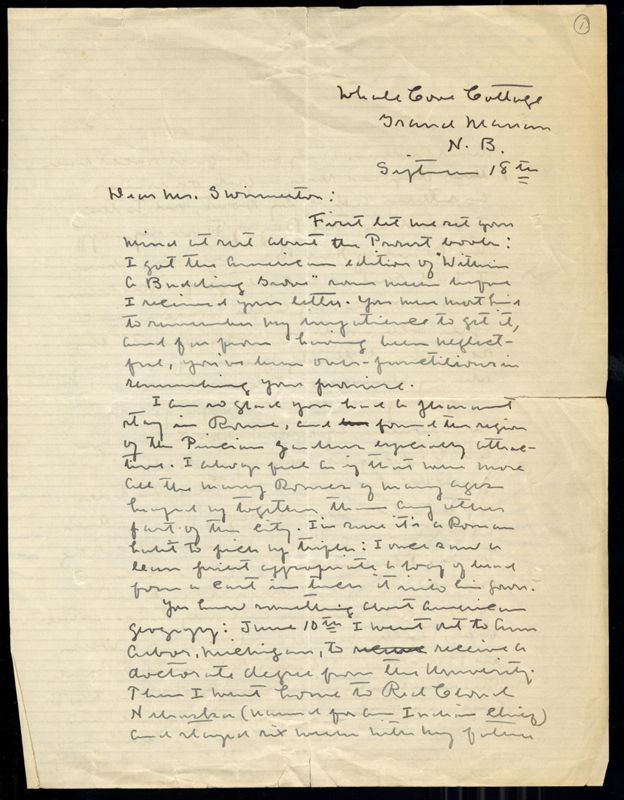 1
Whale Cove Cottage
Grand Manan
N. B.
September 18th
Dear Mr. Swinnerton:
First let me set your
mind at rest about the Proust books:
I got the American edition of "Within
A Budding Grove" some weeks before
I received your letter. You were most kind
to remember my impatience to get it,
and far from having been neglect-
ful, you've been over-punctilious in
remembering your promise.
I am so glad you had a pleasant
stay in Rome, and found the region
of the Pincian gardens especially attrac-
tive. I always feel as if that were more
all the many Romes of many ages
heaped up together than any other
part of the city. I'm sure it's a Roman
habit to pick up trifles: I once saw a
lean priest appropriate a loaf of bread
from a cart and tuck it into his gown.
You know something about American
geography: June 10th I went out to Ann
Arbor, Michigan, to receive a
doctorate degree from the University.
Then I went home to Red Cloud
Nebraska (named for an Indian Chief)
and stayed six weeks with my father